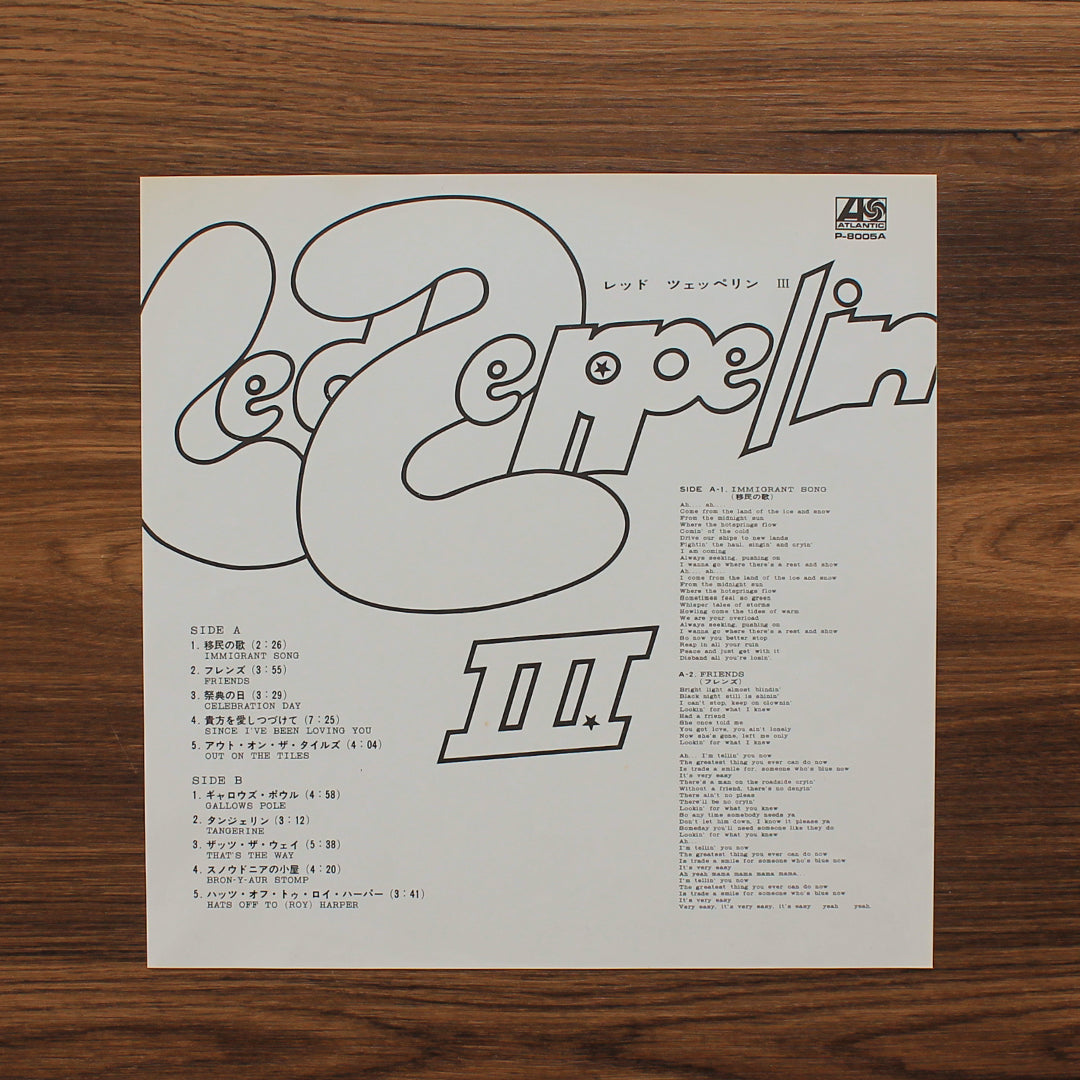 ATLANTIC
P-8005A
レッド ツェッペリン III
Led Zeppelin
III
SIDE A
1. 移民の歌 (2:26)
IMMIGRANT SONG
2. フレンズ (3:55)
FRIENDS
3. 祭典の日 (3:29)
CELEBRATION DAY
4. 貴方を愛しつづけて (7:25)
SINCE I'VE BEEN LOVING YOU
5. アウト・オン・ザ・タイルズ (4:04)
OUT ON THE TILES
SIDE B
1. ギャロウズ・ポウル (4:58)
GALLOWS POLE
2. タンジェリン (3:12)
TANGERINE
3. ザッツ・ザ・ウェイ (5:38)
THAT'S THE WAY
4. スノウドニアの小屋 (4:20)
BRON-Y-AUR STOMP
5. ハッツ・オフ・トゥ・ロイ・ハーパー (3:41)
HATS OFF TO (ROY) HARPER
SIDE A-1. IMMIGRANT SONG
(移民の歌)
Ah.... ah....
Come from the land of the ice and snow
From the midnight sun
Where the hotsprings flow
Comin' of the cold
Drive our ships to new lands
Fightin' the haul, singin' and cryin'
I am coming
Always seeking, pushing on
I wanna go where there's a rest and show
Ah.... ah....
I come from the land of the ice and snow
From the midnight sun
Where the hotsprings flow
Sometimes feel so green
Whisper tales of storms
Howling come the tides of warm
We are your overload
Always seeking, pushing on
I wanna go where there's a rest and show
So now you better stop
Reap in all your ruin
Peace and just get with it
Disband all you're losin'.
A-2. FRIENDS
(フレンズ)
Bright light almost blindin'
Black night still is shinin'
I can't stop, keep on clownin'
Lookin' for what I knew
Had a friend
She once told me
You got love, you ain't lonely
Now she's gone, left me only
Lookin' for what I knew
Ah... I'm tellin' you now
The greatest thing you ever can do now
Is trade a smile for, someone who's blue now
It's very easy
There's a man on the roadside cryin'
Without a friend, there's no denyin'
There ain't no pleas
There'll be no cryin'
Lookin' for what you knew
So any time somebody needs ya
Don't let him down, I know it please ya
Someday you'll need someone like they do
Lookin' for what you knew
Ah...
I'm tellin' you now
The greatest thing you ever can do now
Is trade a smile for someone who's blue now
It's very easy
Ah yeah mama mama mama mama..
I'm tellin' you now
The greatest thing you ever can do now
Is trade a smile for someone who's blue now
It's very easy
Very easy, it's very easy, it's easy yeah yeah.